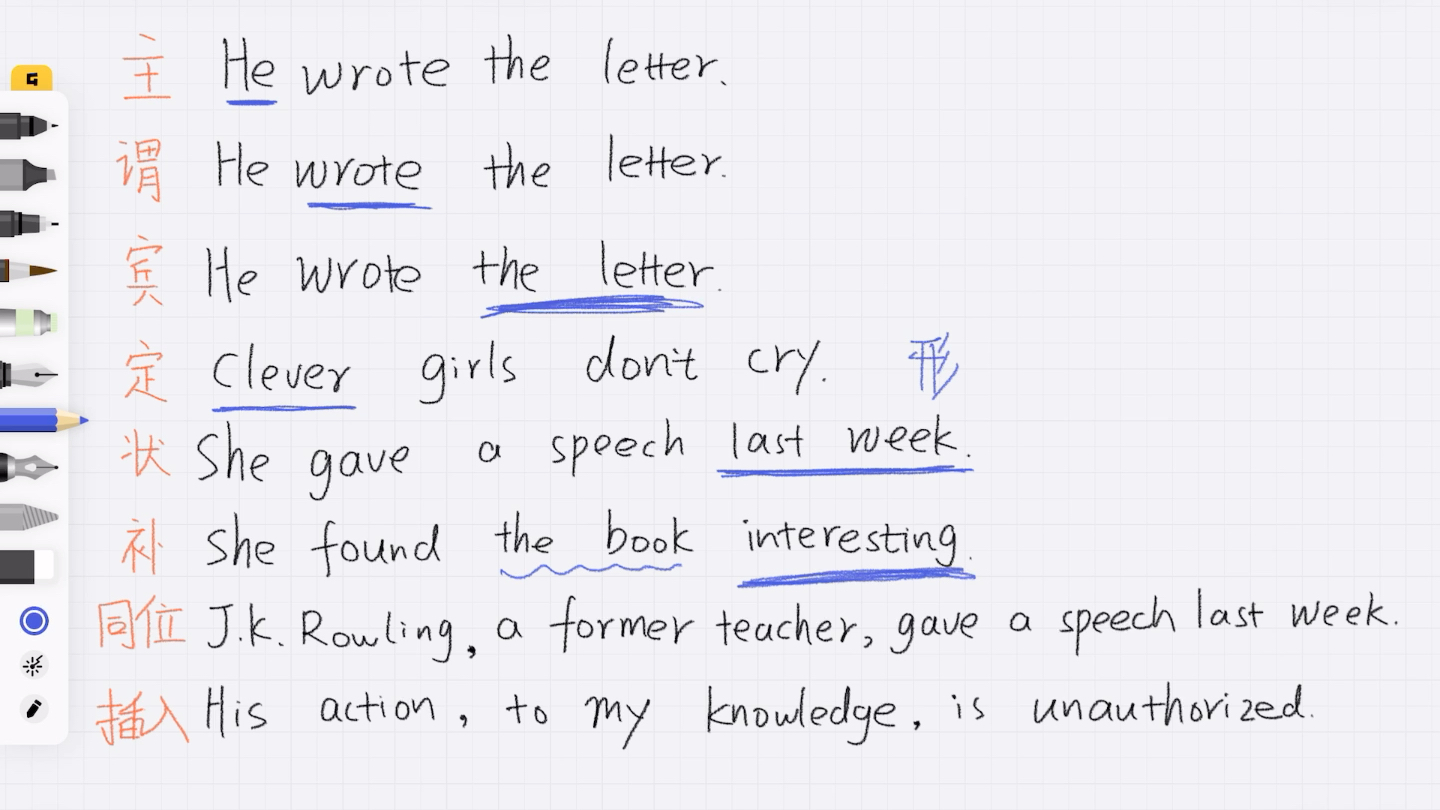 主 He wrote the letter.
谓 He wrote the letter.
宾 He wrote the letter.
定 Clever girls don't cry. 形
状 She gave a speech last week.
补 She found the book interesting.
同位 J.k. Rowling, a former teacher, gave a speech last week.
插入 His action, to my knowledge, is unauthorized.